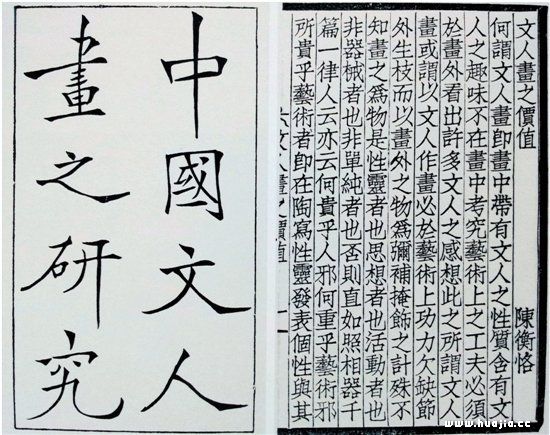 中國文人
畫之研究
文人畫之價值
陳衡恪
何謂文人畫即畫中帶有文人之性質含有文
人之趣味不在畫中考究藝術上之工夫必須
於畫外看出許多文人之感想此之所謂文人
畫或謂以文人作畫必於藝術上功力欠缺節
外生枝而以畫外之物爲彌補掩飾之計殊不
知畫之爲物是性靈者也思想者也活動者也
非器械者也非單純者也否則直如照相器千
篇一律人云亦云何貴乎人邪何重乎藝術邪
所貴乎藝術者即在陶寫性靈發表個性與其
文人畫之價值 一
www.huajia.cc